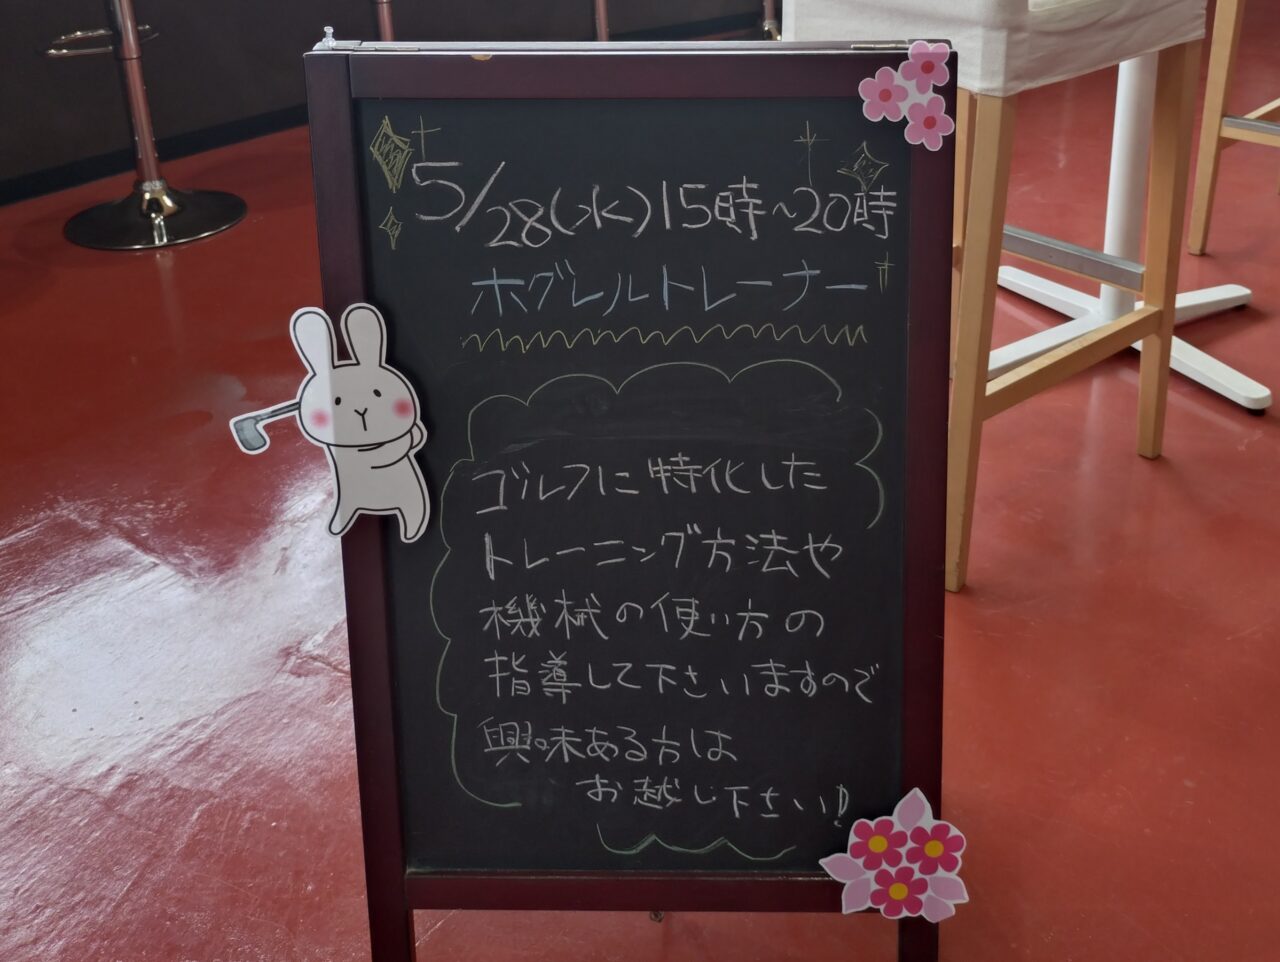 5/28(水)15時~20時
ホグレルトレーナー
ゴルフに特化した
トレーニング方法や
機械の使い方の
指導して下さいますので
興味ある方は
お越し下さい!